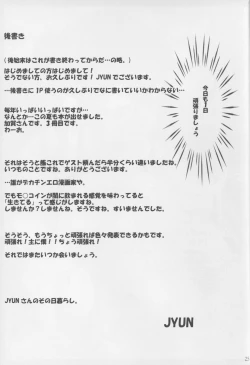 後書き
(後始末はこれが書き終わってからだ…の略。)
はじめましての方ははじめまして！
そうでない方、お久しぶりです！JYUNでございます。
―後書きに1P使うのが久しぶりでなに書いていいかわからない…
毎年いっぱいいっぱいですが〜
なんとか…この夏も本が出せました。
加賀さんです、3冊目です。
わーお。
それはそうと艦これでゲスト頼んだら半分くらい違いましたね、
いつものことですね。ありがとうございます。
…誰がデカチンエロ漫画家や、
でもモ○コインが闇に飲まれる感覚を味わってると
「生きてる」って感じがしますね。
しませんか？しませんね、すいませんでした。
そうそう、もうちょっと頑張れば色々発表できるかもです。
頑張れ！主に僕！！ちょう頑張れ！
それではまたいつか会いましょう。
JYUNさんのその日暮らし。
今日も1日
頑張りましょう
JYUN